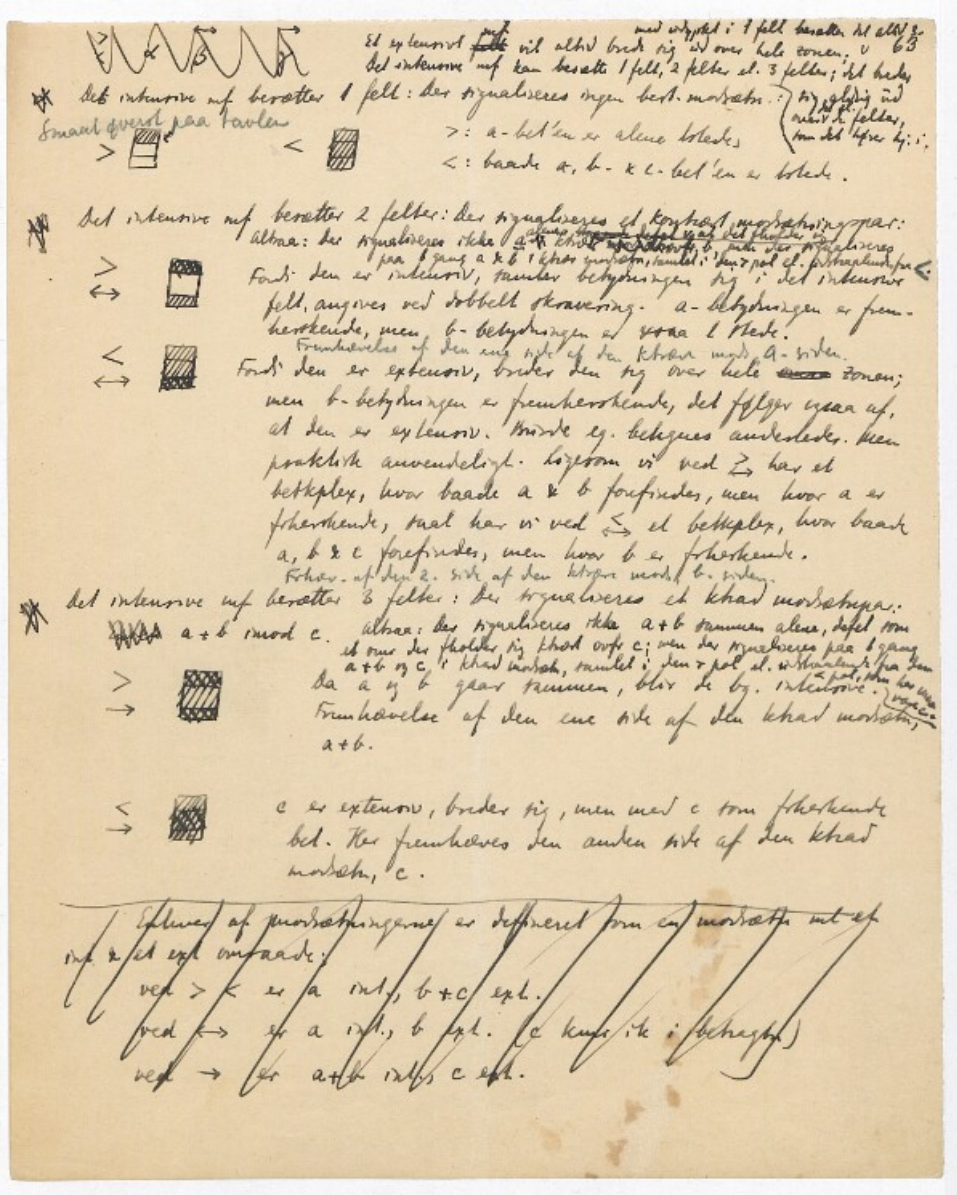 63
α β γ
med udgpkt i 1 felt besætter det altid
Et extensivt mf vil altid brede sig ud over hele zonen;
Det intensive mf kan besætte 1 felt, 2 felter el. 3 felter; det breder
sig gldig ud
over de felter,
som det hører hj. i.
Det intensive mf besætter 1 felt: Der signaliseres ingen best. modsætn.:
Smaat øverst paa tavlen
> : a-bet'en er alene tstede,
< : baade a, b- & c-bet'en er tstede.
Det intensive mf besætter 2 felter: Der signaliseres et kontrært modsætningspar:
altsaa: der signaliseres ikke a
paa 1 gang a & b i ktrær modsætn, samlet i den pol el.
Fordi den er intensiv, samler betydningen sig i det intensive
felt, angives ved dobbelt skravering. a-betydningen er frem-
herskende, men b-betydningen er ogsaa t stede.
Fremhævelse af den ene side af den ktrære mods, a-siden.
Fordi den er extensiv, breder den sig over hele zonen;
men b-betydningen er fremherskende, det følger ogsaa af,
at den er extensiv. Burde eg. betegnes anderledes. Men
praktisk anvendeligt. Ligesom vi ved >↔ har et
betkplex, hvor baade a & b forefindes, men hvor a er
frherskende, saal har vi ved <↔ et betkplex, hvor baade
a, b & c forefindes, men hvor b er frherskende.
Frhæv. af den 2. side af den ktrære mods, b-siden.
Det intensive mf besætter 3 felter: Der signaliseres et ktrad modsætnpar:
a+b imod c. altsaa: der signaliseres ikke a+b sammen alene, defst som
et mr der fholder sig ktradt ovfr c; men der signaliseres paa 1 gang
a+b og c, i ktrad modsætn, samlet i den pol el. udstraalende fra den
Da a og b gaar sammen, blir de bg. intensive.
Fremhævelse af den ene side af den ktrad modsætn,
a+b.
c er extensiv, breder sig, men med c som frherskende
bet. Her fremhæves den anden side af den ktrad
modsætn, c.
Enhver af modsætningerne er defineret som en modsætn ml et
int. & et ext område:
ved > < er a int., b+c ext.
ved ↔ er a int., b ext. (c kmr ik i betragtn)
ved → er a+b int., c ext.